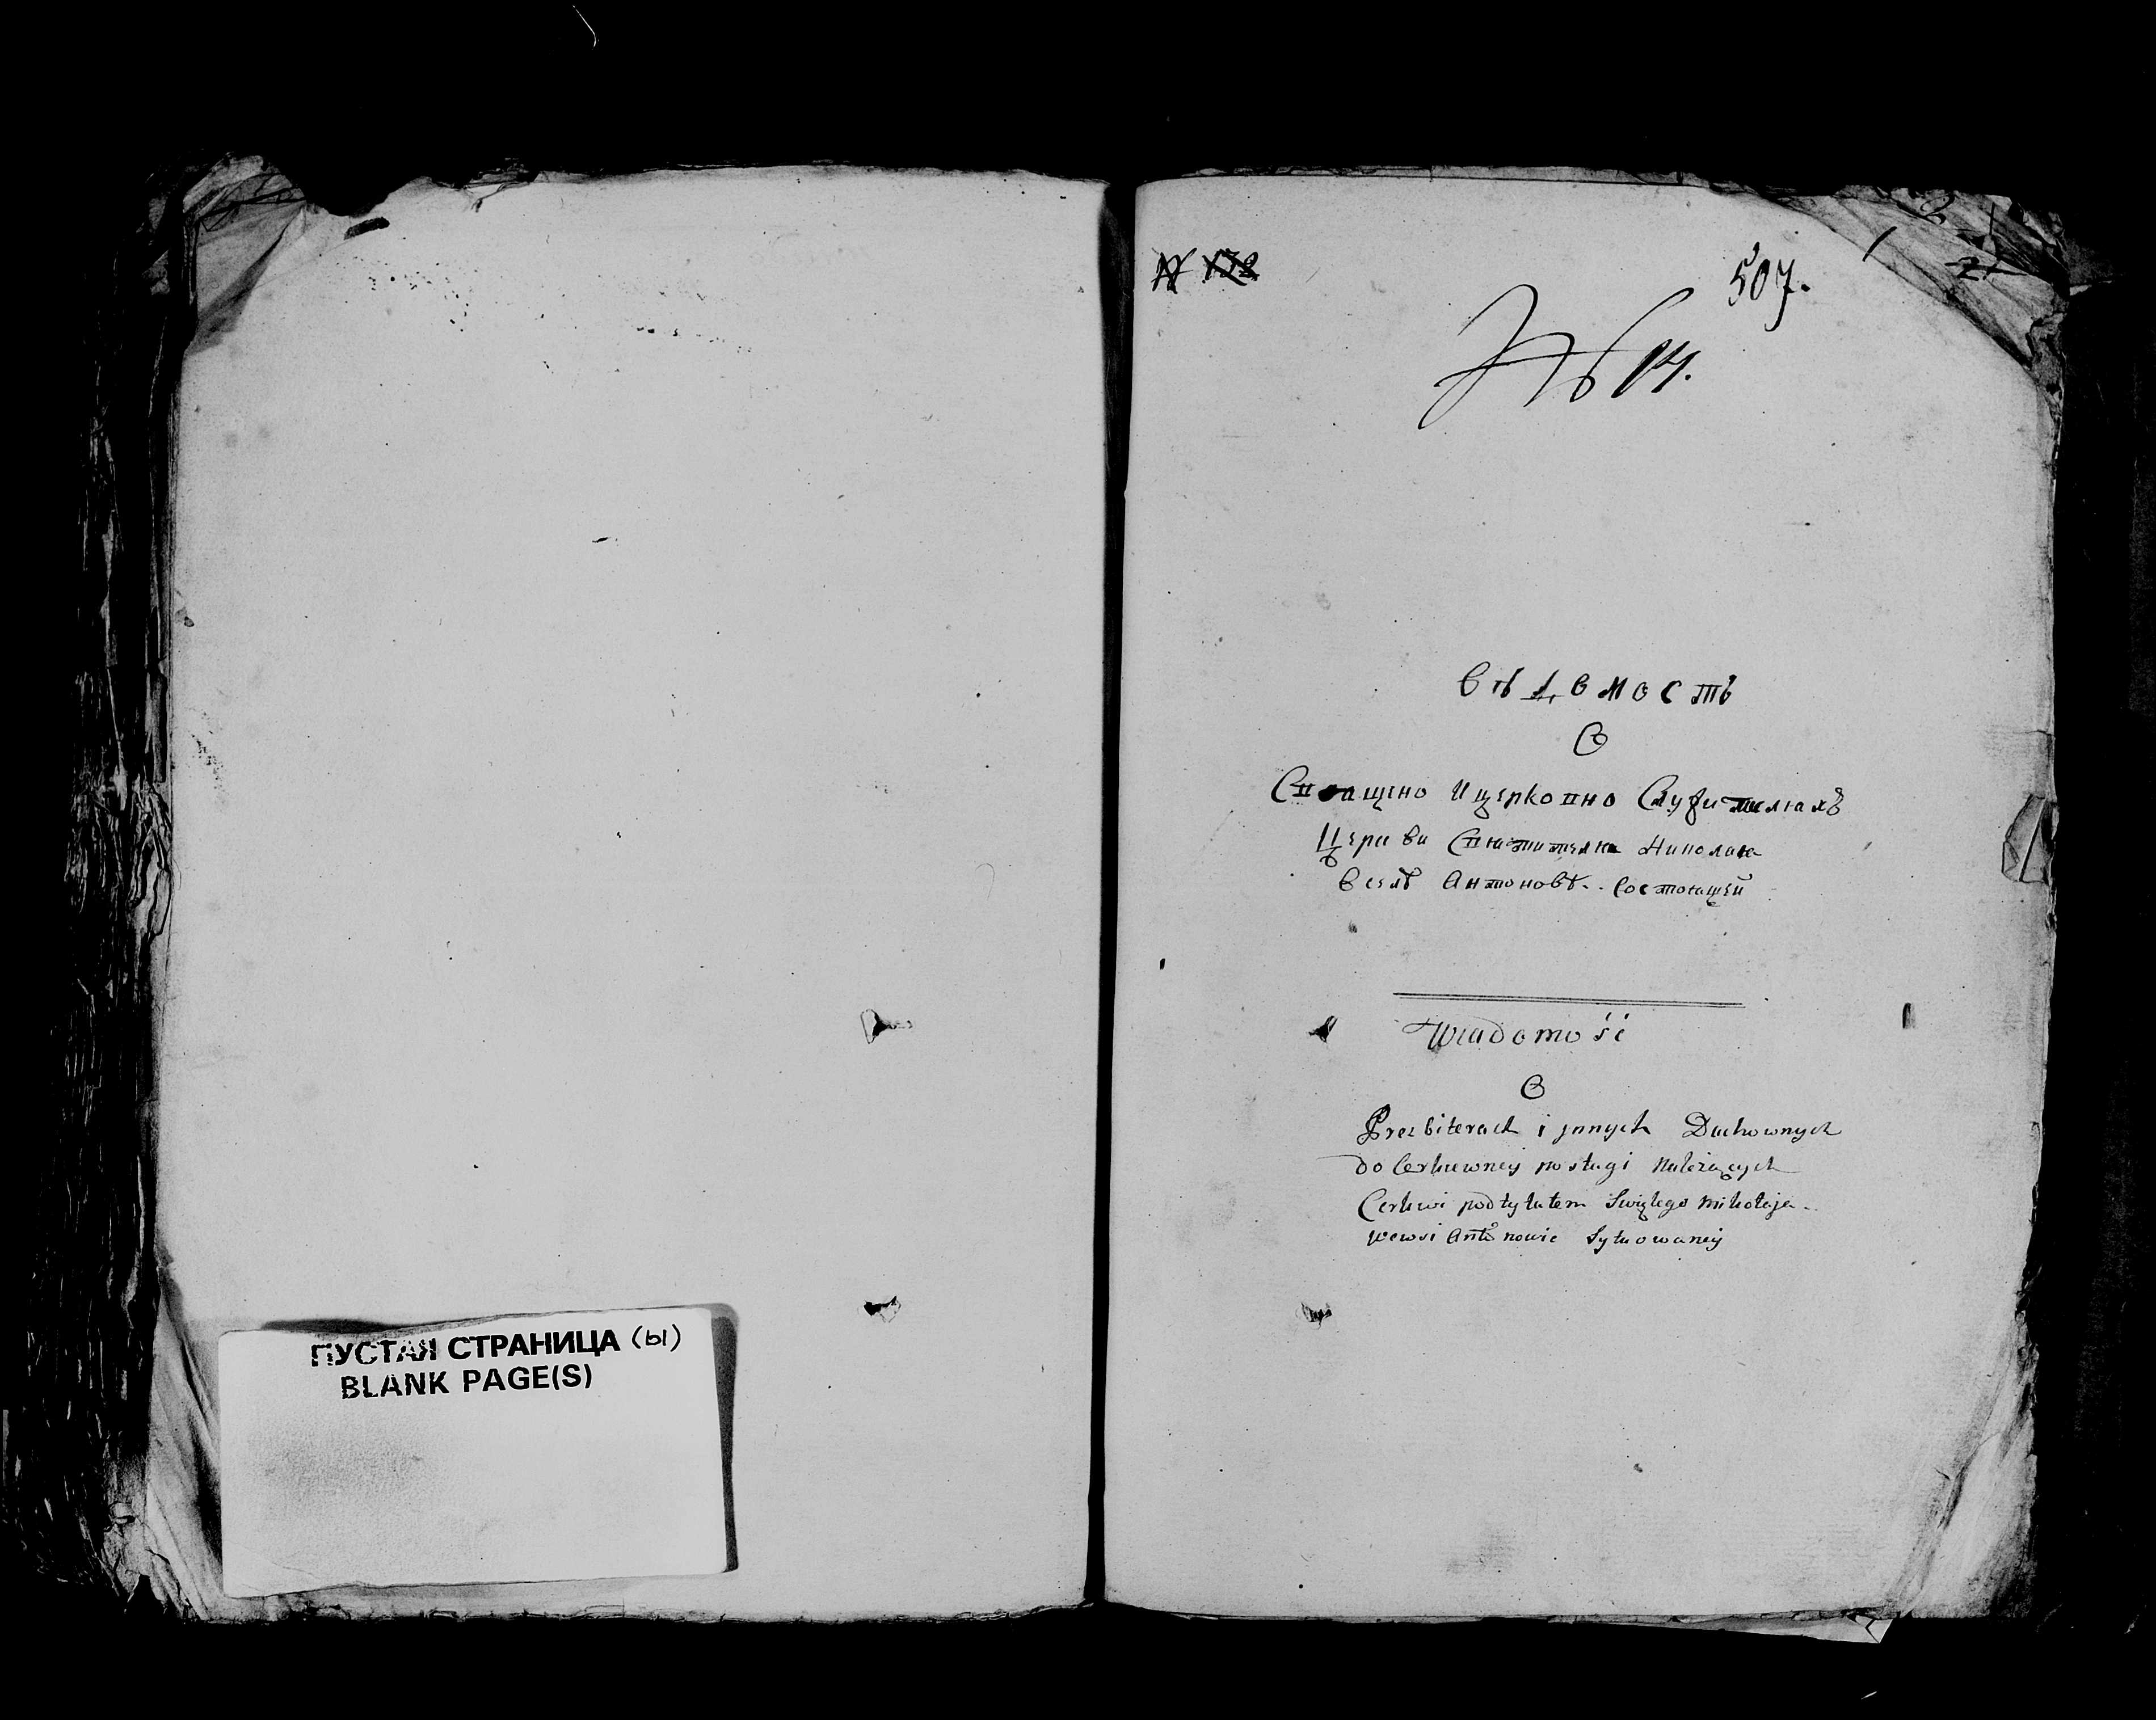 ПУСТАЯ СТРАНИЦА (Ы)
BLANK PAGE(S)
507.
№ 14.
Вѣдомость
О
Священо Ицерковно Служителяхъ
Церкви Святителя Николая
Вселѣ Антоновѣ. Состоящей
Wiadomość
O
Prezbiterach i jnnych Duchownych
do Cerkiewney posługi Należących
Cerkwi pod tytułem Swiętego Mikołaja
wewsi Antonowie Sytuowaney